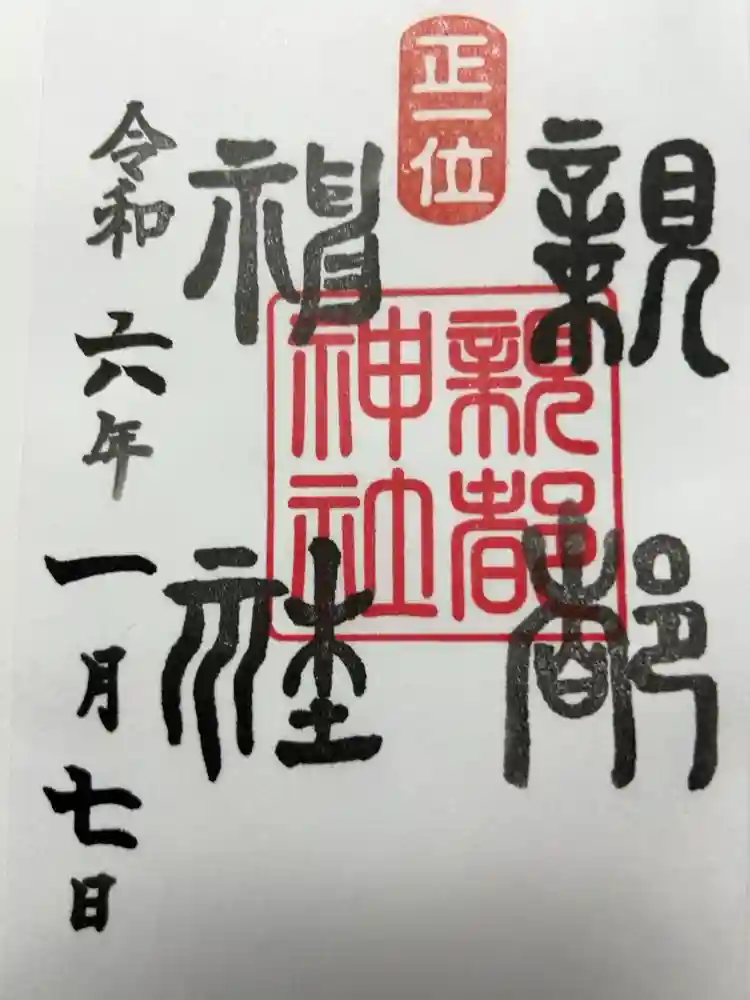 正一位
親都
神社
親都
神社
令和六年一月七日